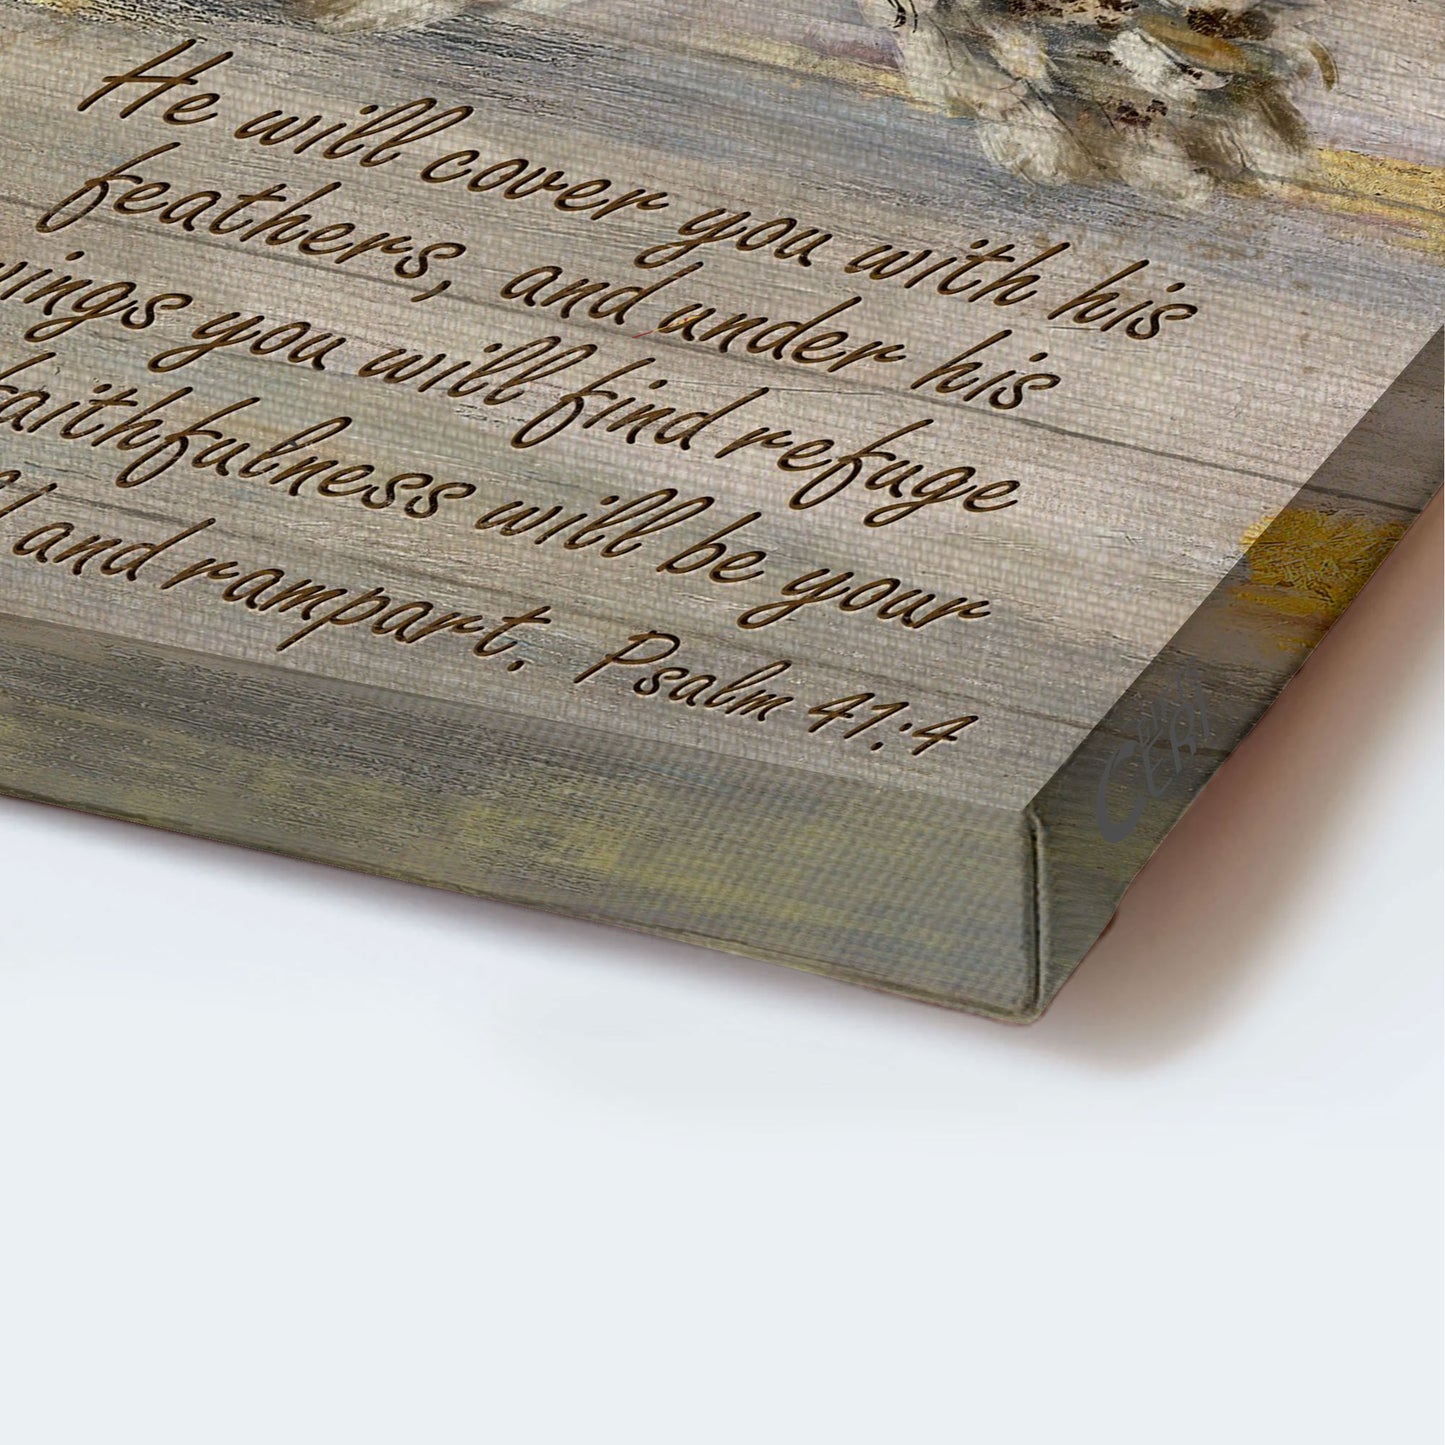 He will cover you with his
feathers, and under his
wings you will find refuge
faithfulness will be your
and rampart. Psalm 41:4